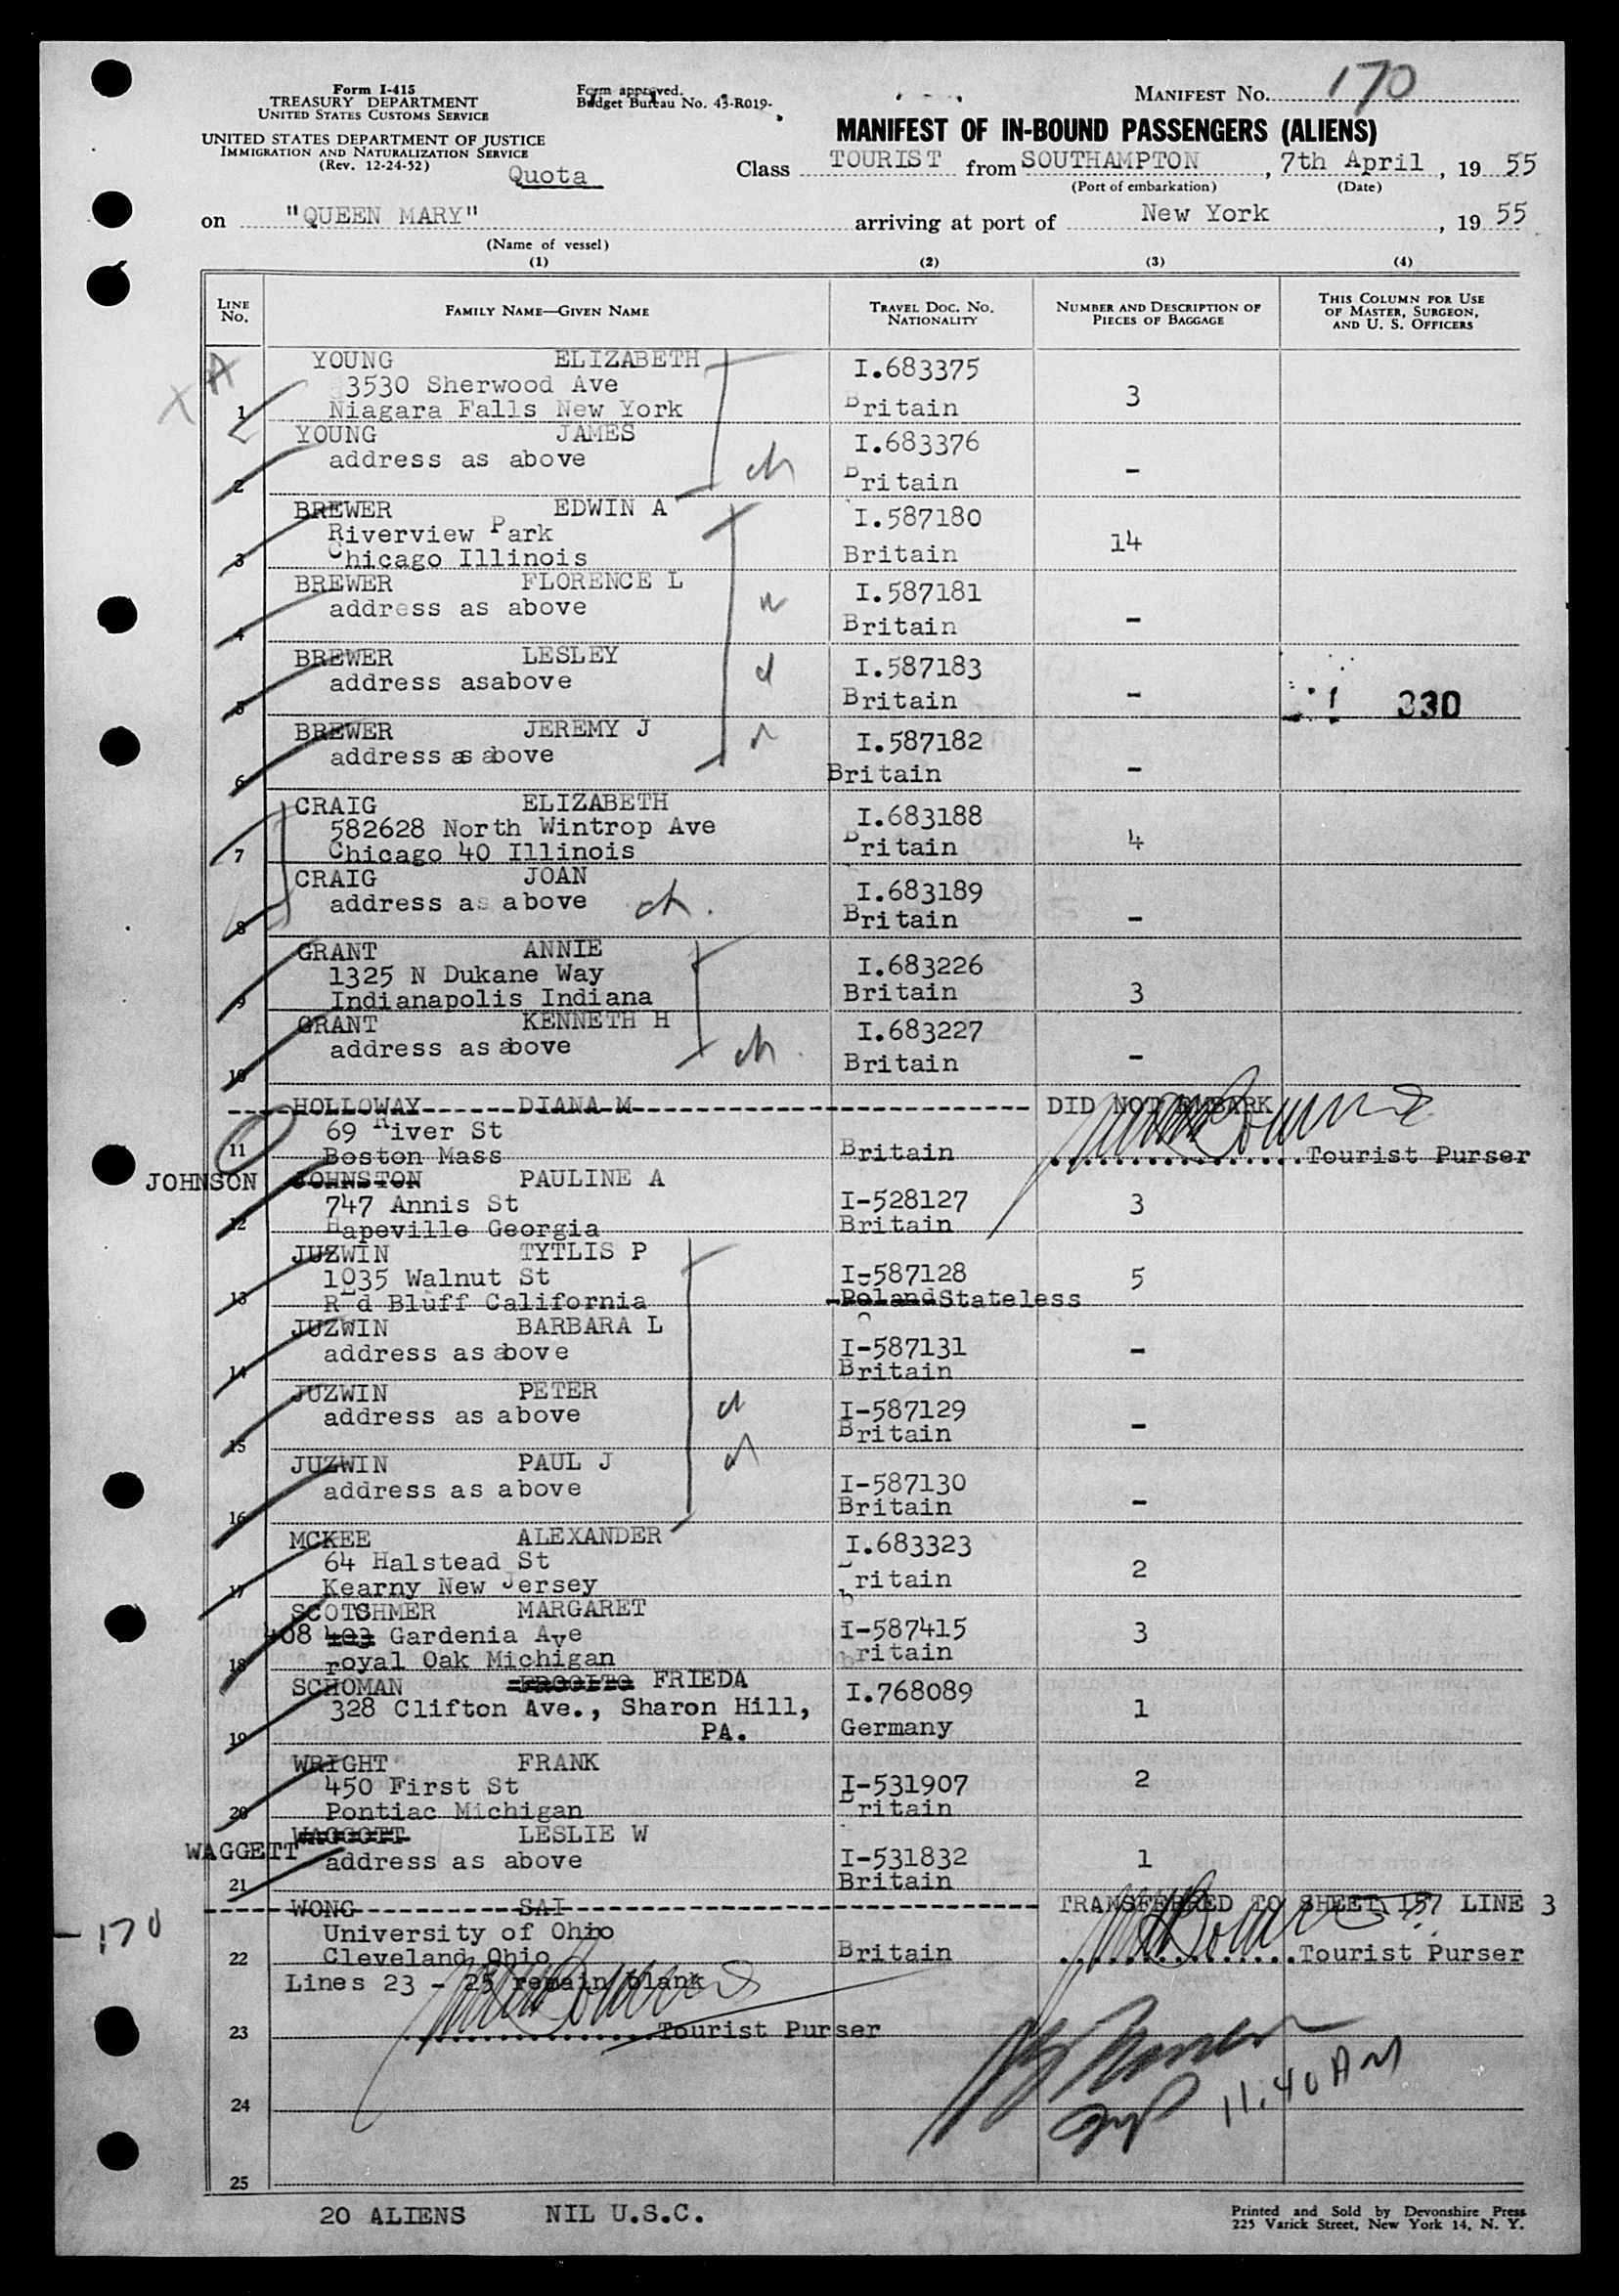 Form I-415
TREASURY DEPARTMENT
UNITED STATES CUSTOMS SERVICE
UNITED STATES DEPARTMENT OF JUSTICE
IMMIGRATION AND NATURALIZATION SERVICE
(Rev. 12-24-52)
Quota
Form approved.
Budget Bureau No. 43-R019-
MANIFEST No. 170
MANIFEST OF IN-BOUND PASSENGERS (ALIENS)
Class TOURIST from SOUTHAMPTON, 7th April, 19 55
(Port of embarkation) (Date)
on "QUEEN MARY" arriving at port of New York, 19 55
(Name of vessel)
(1) (2) (3) (4)
LINE No. FAMILY NAME—GIVEN NAME TRAVEL DOC. No. NATIONALITY NUMBER AND DESCRIPTION OF PIECES OF BAGGAGE THIS COLUMN FOR USE OF MASTER, SURGEON, AND U. S. OFFICERS
X A
YOUNG ELIZABETH I.683375
3530 Sherwood Ave
1 Niagara Falls New York Britain 3
YOUNG JAMES I.683376
address as above ch
2 Britain -
BREWER EDWIN A I.587180
Riverview Park
3 Chicago Illinois Britain 14
BREWER FLORENCE L I.587181
address as above
4 Britain -
BREWER LESLEY I.587183
address asabove
5 Britain - 330
BREWER JEREMY J I.587182
address as above
6 Britain -
CRAIG ELIZABETH I.683188
582628 North Wintrop Ave
7 Chicago 40 Illinois Britain 4
CRAIG JOAN I.683189
address as above ch.
8 Britain -
GRANT ANNIE I.683226
1325 N Dukane Way
9 Indianapolis Indiana Britain 3
GRANT KENNETH H I.683227
address as above ch.
10 Britain -
HOLLOWAY DIANA M DID NOT EMBARK
69 River St
11 Boston Mass Britain Tourist Purser
JOHNSON JOHNSTON PAULINE A
747 Annis St I-528127 3
12 Hapeville Georgia Britain
JUZWIN TYTLIS P
1035 Walnut St I-587128 5
13 Red Bluff California Poland Stateless
JUZWIN BARBARA L
address as above I-587131 -
14 Britain
JUZWIN PETER
address as above I-587129
15 Britain -
JUZWIN PAUL J
address as above I-587130
16 Britain -
MCKEE ALEXANDER I.683323
64 Halstead St
17 Kearny New Jersey Britain 2
SCOTCHMER MARGARET
408 403 Gardenia Ave I-587415 3
18 royal Oak Michigan britain
SCHOMAN FRIEDA I.768089
328 Clifton Ave., Sharon Hill, 1
19 PA. Germany
WRIGHT FRANK
450 First St I-531907 2
20 Pontiac Michigan Britain
WAGGETT WAGGOTT LESLIE W
address as above I-531832 1
21 Britain
WONG SAI TRANSFERRED TO SHEET 157 LINE 3
- 170
University of Ohio
22 Cleveland Ohio Britain Tourist Purser
Lines 23 - 25 remain blank
23 Tourist Purser
11.40 AM
24
25
20 ALIENS NIL U.S.C.
Printed and Sold by Devonshire Press
225 Varick Street, New York 14, N. Y.